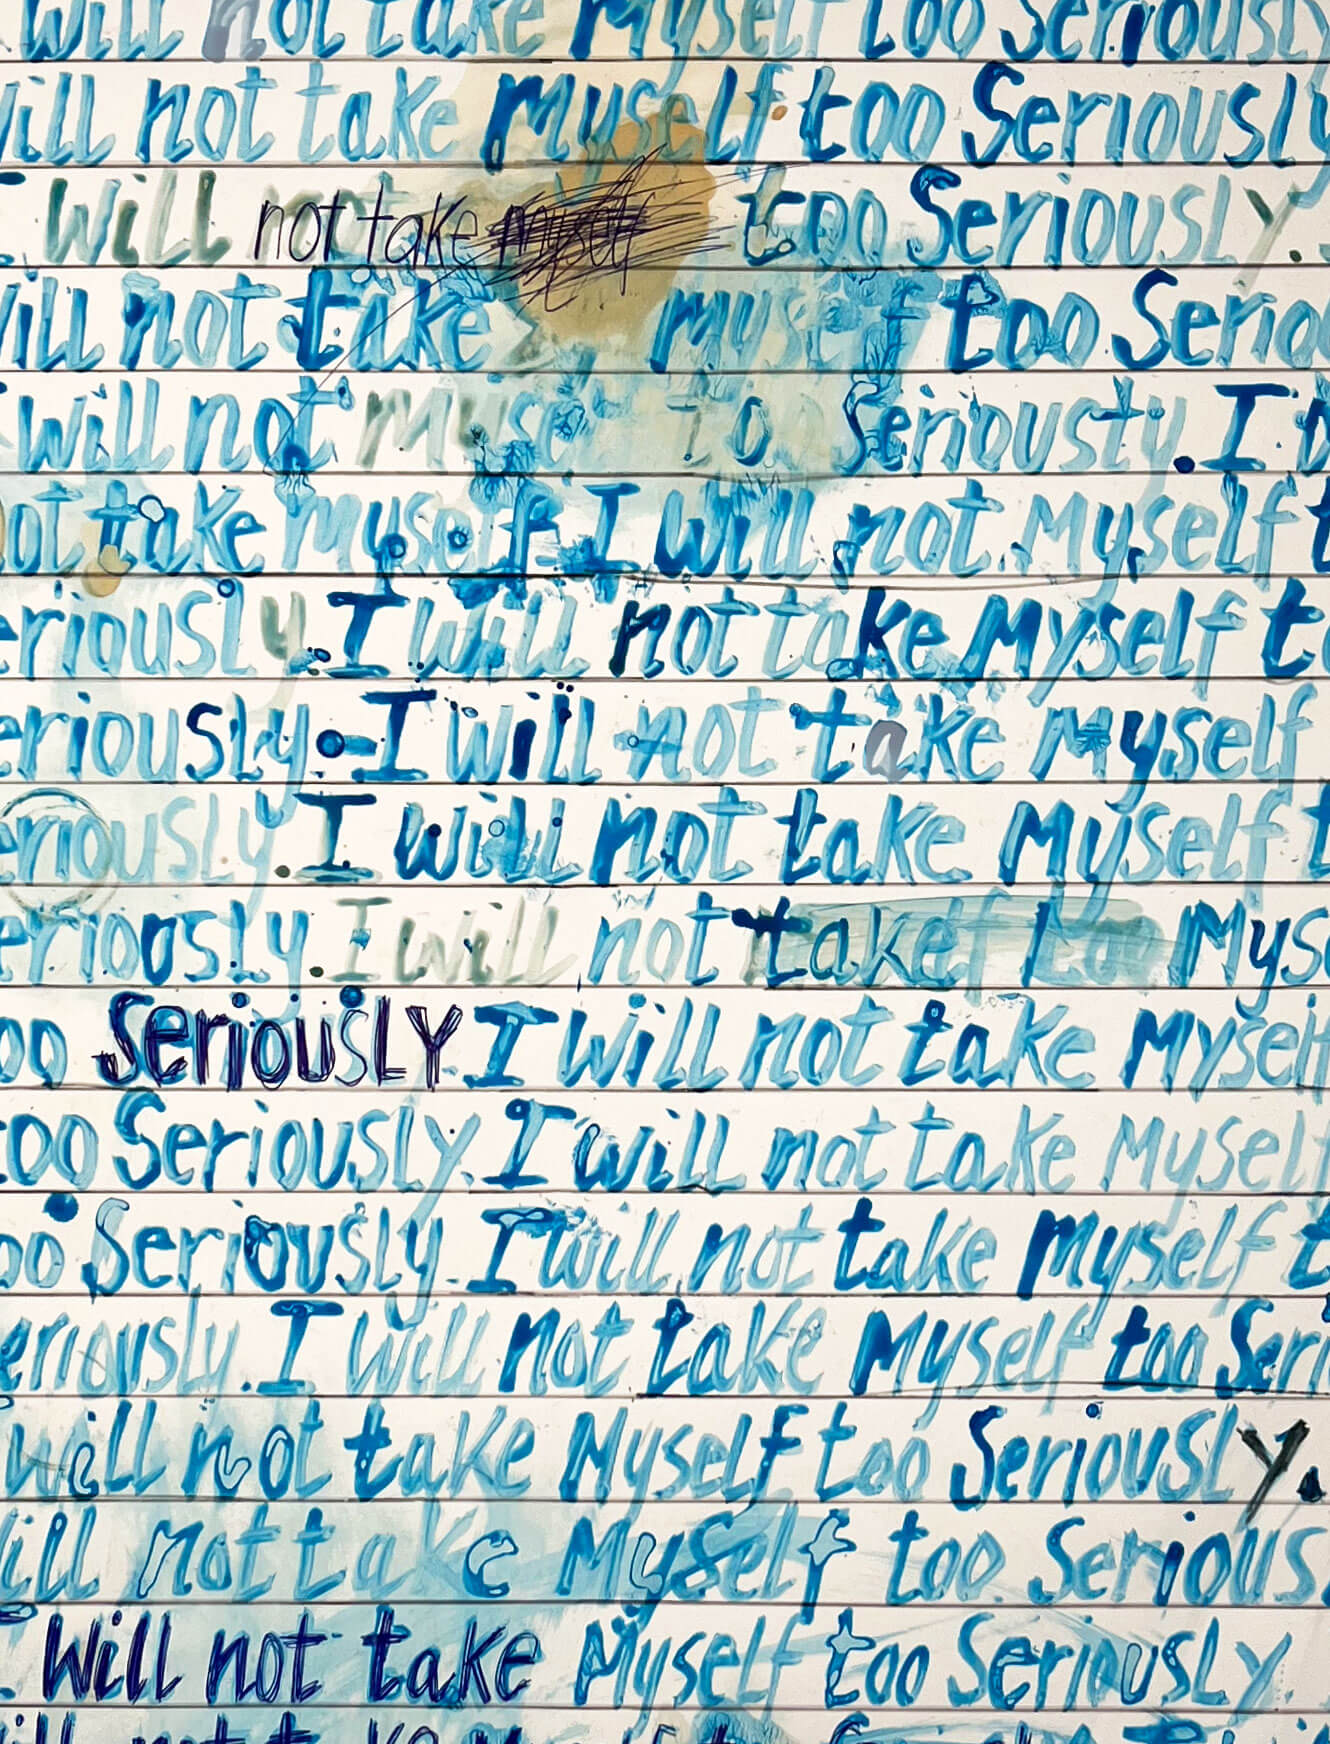 will not take Myself too Seriously
will not take Myself too Seriously
I will not take myself too Seriously.
will not take myself too Serio
will not Myse to Seriousty. I
ot take myself I will not Myself t
eriously. I will not take Myself to
eriously. I will not take Myself
eriously. I will not take Myself t
eriously. I will not take Myse
oo SeriousLY I will not take Myself
too Seriously. I will not take Myself
oo Seriously I will not take Myself t
eriously. I will not take Myself too Seri
will not take Myself too Seriously.
will not take Myself too Serious
Will not take Myself too Seriously